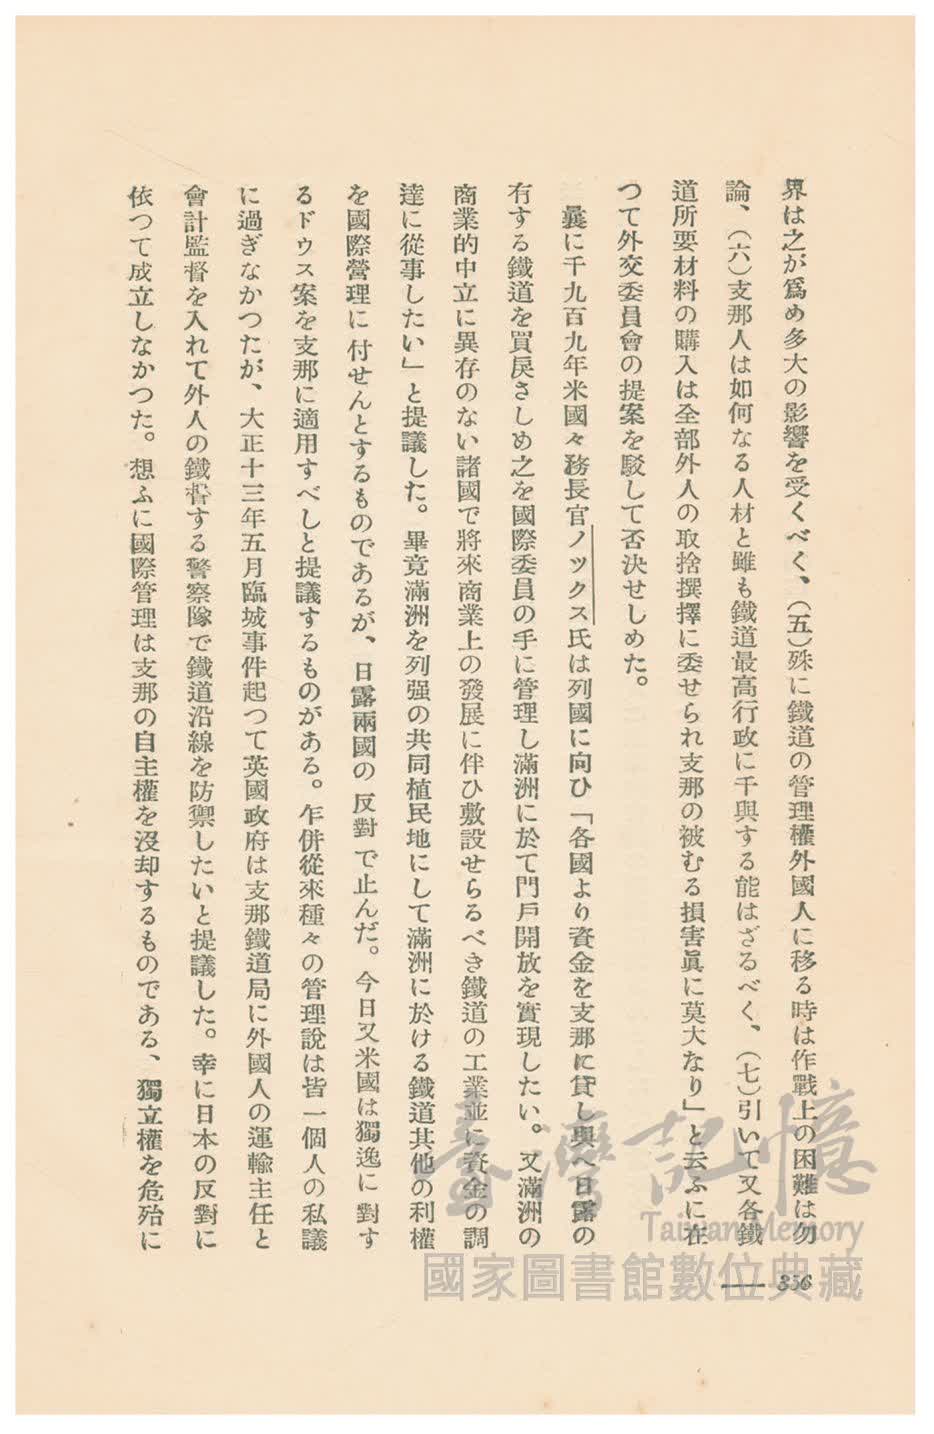 界は之が爲め多大の影響を受くべく、(五)殊に鐵道の管理權外國人に移る時は作戰上の困難は勿
論、(六)支那人は如何なる人材と雖も鐵道最高行政に干與する能はざるべく、(七)引いて又各鐵
道所要材料の購入は全部外人の取捨撰擇に委せられ支那の被むる損害眞に莫大なり」と云ふに在
つて外交委員會の提案を駁して否決せしめた。
曩に千九百九年米國々務長官ノックス氏は列國に向ひ「各國より資金を支那に貸し與へ日露の
有する鐵道を買戾さしめ之を國際委員の手に管理し滿洲に於て門戶開放を實現したい。又滿洲の
商業的中立に異存のない諸國で將來商業上の發展に伴ひ敷設せらるべき鐵道の工業並に資金の調
達に從事したい」と提議した。畢竟滿洲を列强の共同植民地にして滿洲に於ける鐵道其他の利權
を國際營理に付せんとするものであるが、日露兩國の反對で止んだ。今日又米國は獨逸に對す
るドウス案を支那に適用すべしと提議するものがある。乍併從來種々の管理說は皆一個人の私議
に過ぎなかつたが、大正十三年五月臨城事件起つて英國政府は支那鐵道局に外國人の運輸主任と
會計監督を入れて外人の鐵督する警察隊で鐵道沿線を防禦したいと提議した。幸に日本の反對に
依つて成立しなかつた。想ふに國際管理は支那の自主權を沒却するものである、獨立權を危殆に
356
臺灣記憶
Taiwan Memory
國家圖書館數位典藏